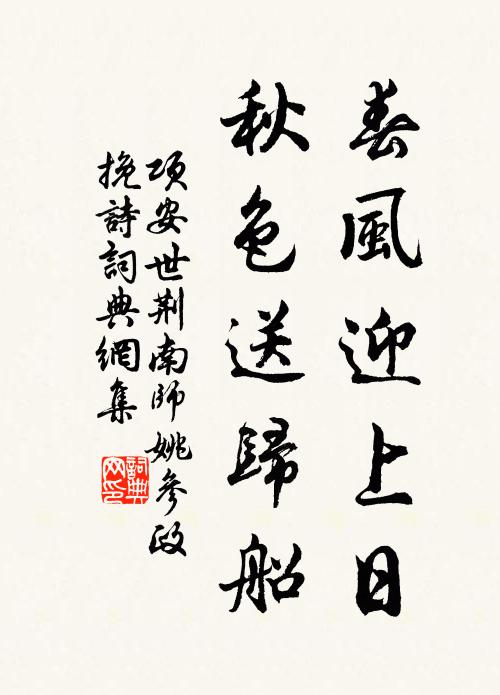 春風迎上日
秋色送歸船
項安世荆南師姚參政
挽詩詞典網集
詞典
网印